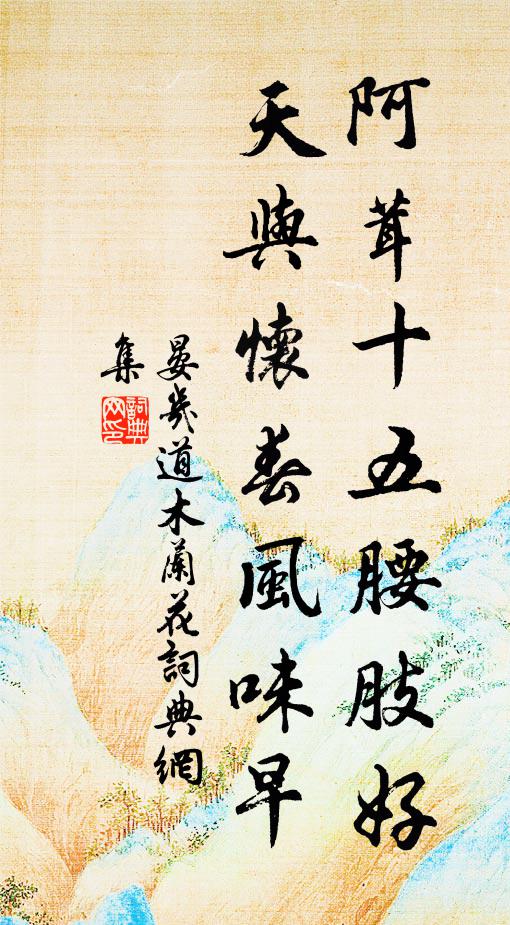 阿茸十五腰肢好
天與懷春風味早
晏幾道木蘭花詞典網
集
詞典網印